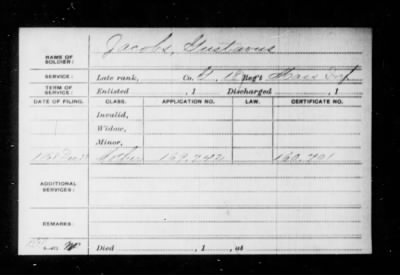 Jacobs, Gustavus
NAME OF SOLDIER:
SERVICE: Late rank, Co. Reg't Mass Inf
TERM OF SERVICE: Enlisted , 1 Discharged , 1
DATE OF FILING. CLASS. APPLICATION NO. LAW. CERTIFICATE NO.
Invalid,
Widow,
Minor,
Mother 169.242 160.291
ADDITIONAL SERVICES:
REMARKS:
Died , 1 , at